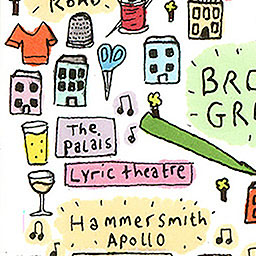 ROAD
BRO
GRE
The
Palais
Lyric theatre
Hammersmith
Apollo